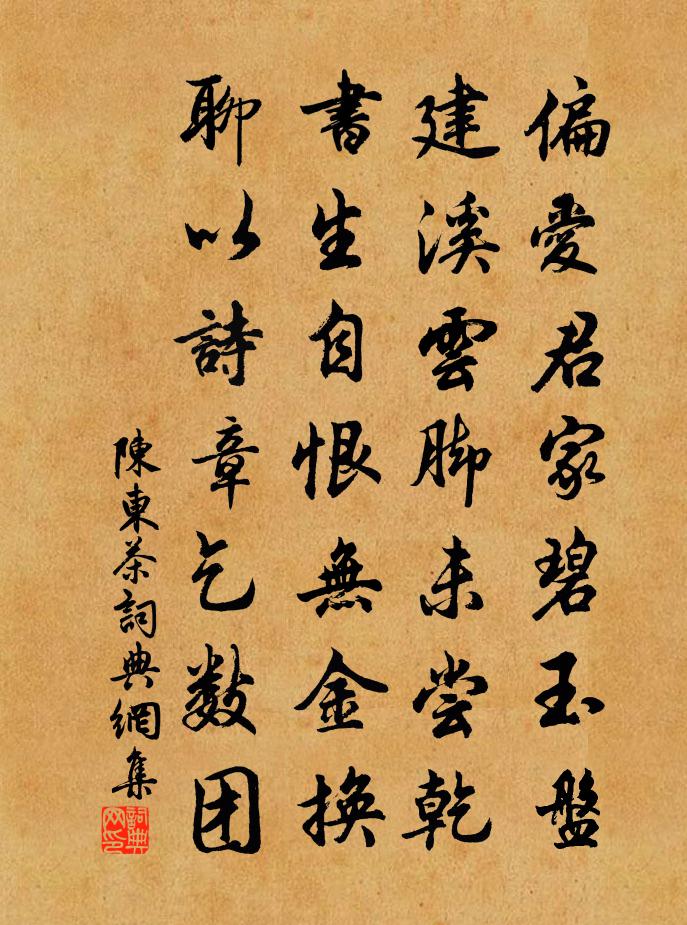 偏愛君家碧玉盤
建溪雲脚未尝乾
書生自恨無金換
聊以詩章乞数团
陳東茶詞典網集
詞典网印